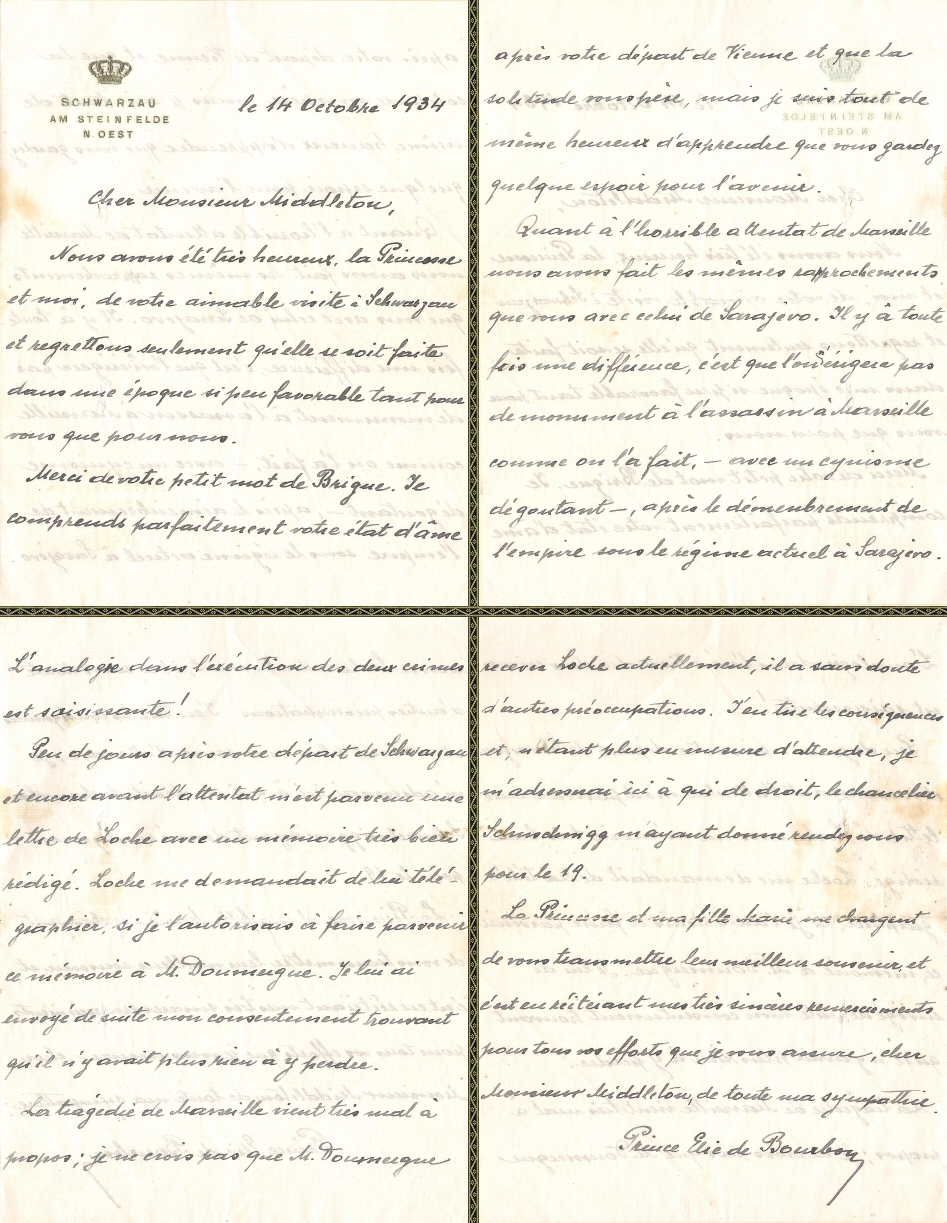 SCHWARZAU
AM STEINFELDE
N. OEST
le 14 Octobre 1934
Cher Monsieur Middleton,
Nous avons été très heureux, la Princesse
et moi, de votre aimable visite à Schwarzau
et regrettons seulement qu'elle se soit faite
dans une époque si peu favorable tant pour
vous que pour nous.
Merci de votre petit mot de Brigue. Je
comprends parfaitement votre état d'âme
après votre départ de Vienne et que la
solitude vous pèse, mais je suis tout de
même heureux d'apprendre que vous gardez
quelque espoir pour l'avenir.
Quant à l'horrible attentat de Marseille
nous avons fait les mêmes rapprochements
que vous avec celui de Sarajevo. Il y à toute
fois une différence, c'est que l'on érigera pas
de monument à l'assassin à Marseille
comme on l'a fait, – avec un cynisme
dégoutant –, après le démembrement de
l'empire sous le régime actuel à Sarajevo.
L'analogie dans l'exécution des deux crimes
est saisissante!
Peu de jours après votre départ de Schwarzau
et encore avant l'attentat m'est parvenu une
lettre de Loche avec un mémoire très bien
rédigé. Loche me demandait de lui télé-
graphier, si je l'autorisais à faire parvenir
ce mémoire à M. Doumergue. Je lui ai
envoyé de suite mon consentement trouvant
qu'il n'y avait plus rien à y perdre.
La tragédie de Marseille vient très mal à
propos; je ne crois pas que M. Doumergue
recevra Loche actuellement, il a sans doute
d'autres préoccupations. J'en tire les conséquences
et, n'étant plus en mesure d'attendre, je
m'adresserai ici à qui de droit, le chancelier
Schuschnigg m'ayant donné rendez vous
pour le 19.
La Princesse et ma fille Marie me chargent
de vous transmettre leur meilleur souvenir, et
c'est en réitérant mes très sincères remerciements
pour tous vos efforts que je vous assure, cher
Monsieur Middleton, de toute ma sympathie.
Prince Elie de Bourbon